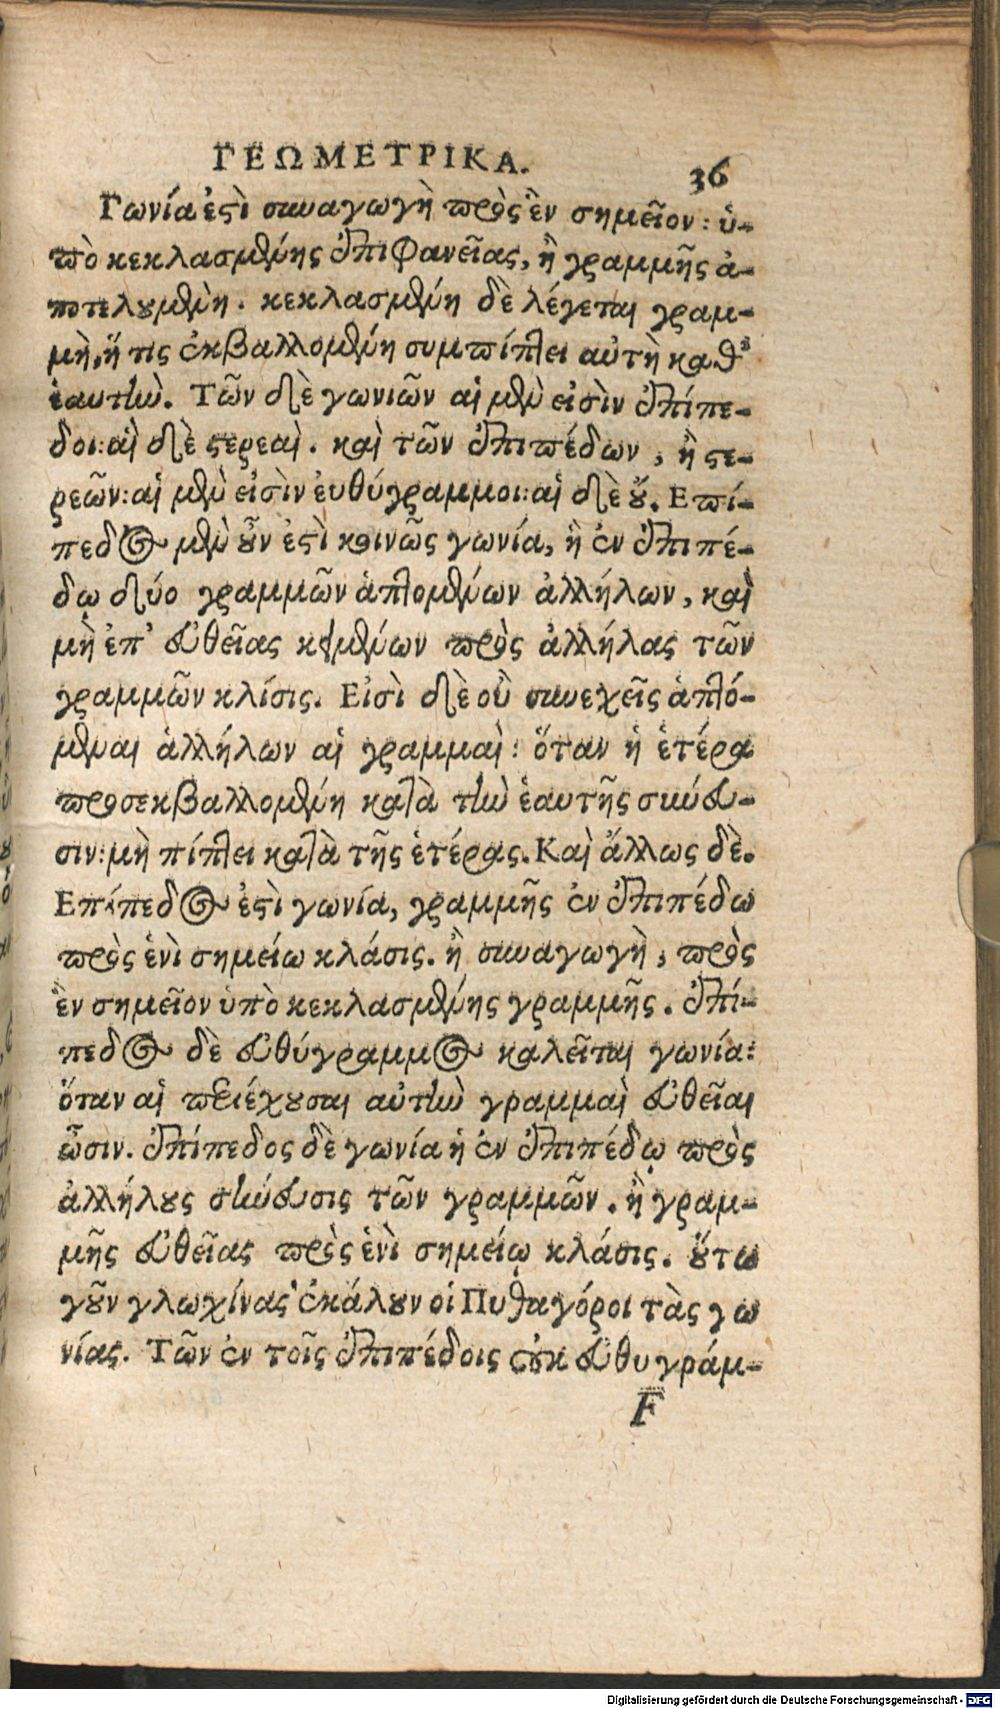 ΓΕΩΜΕΤΡΙΚΑ.
36
Γωνία ἐστὶ συναγωγὴ πρὸς ἓν σημεῖον: ὑ-
πὸ κεκλασμένης ἐπιφανεῖας, ἢ γραμμῆς ἀ-
ποτελουμένη. κεκλασμένη δὲ λέγεται γραμ-
μὴ, ἥ τις ἐκβαλλομένη συμπίπτει αὐτὴ καθ'
ἑαυτὴν. Τῶν δὲ γωνιῶν αἱ μὲν εἰσὶν ἐπίπε-
δοι: αἱ δὲ στερεαὶ. καὶ τῶν ἐπιπέδων, ἢ στε-
ρεῶν: αἱ μὲν εἰσὶν ἐυθύγραμμοι: αἱ δὲ οὔ. Επί-
πεδος μὲν οὖν ἐστὶ κοινῶς γωνία, ἡ ἐν ἐπιπέ-
δῳ δύο γραμμῶν ἁπτομένων ἀλλήλων, καὶ
μὴ ἐπ' εὐθεῖας κειμένων πρὸς ἀλλήλας τῶν
γραμμῶν κλίσις. Εἰσὶ δὲ οὐ συνεχεῖς ἁπτό-
μεναι ἀλλήλων αἱ γραμμαὶ: ὅταν ἡ ἑτέρα
προσεκβαλλομένη κατὰ τὴν ἑαυτῆς σύνευ-
σιν: μὴ πίπτει κατὰ τῆς ἑτέρας. Καὶ ἄλλως δὲ.
Επίπεδος ἐστὶ γωνία, γραμμῆς ἐν ἐπιπέδω
πρὸς ἑνὶ σημείω κλάσις. ἢ συναγωγὴ, πρὸς
ἓν σημεῖον ὑπὸ κεκλασμένης γραμμῆς. ἐπί-
πεδος δὲ εὐθύγραμμος καλεῖται γωνία:
ὅταν αἱ περιέχουσαι αὐτὴν γραμμαὶ εὐθεῖαι
ὦσιν. ἐπίπεδος δὲ γωνία ἡ ἐν ἐπιπέδῳ πρὸς
ἀλλήλους σύνευσις τῶν γραμμῶν. ἢ γραμ-
μῆς εὐθεῖας πρὸς ἑνὶ σημείῳ κλάσις. οὕτω
γοῦν γλωχίνας ἐκάλουν οἱ Πυθαγόροι τὰς γω
νίας. Τῶν ἐν τοῖς ἐπιπέδοις οὐκ εὐθυγράμ-
F
Digitalisierung gefördert durch die Deutsche Forschungsgemeinschaft - DFG